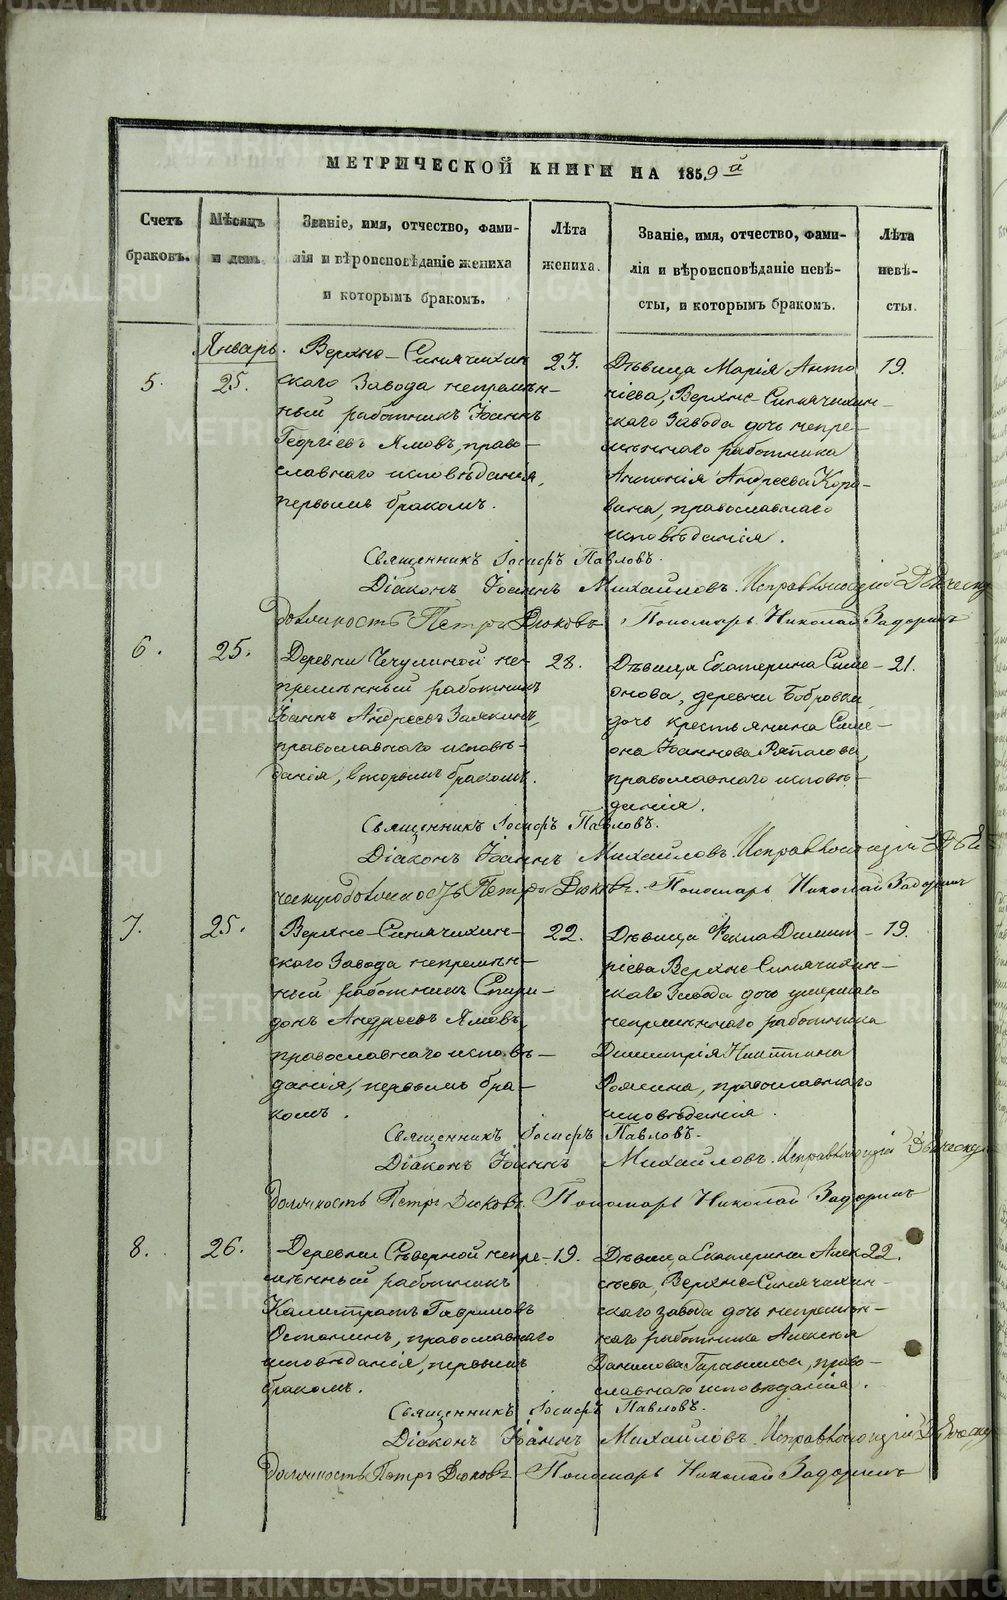 МЕТРИЧЕСКОЙ КНИГИ НА 1859й
Счетъ браковъ.
Мѣсяцъ и день
Званіе, имя, отчество, фами-
лія и вѣроисповѣданіе жениха
и которымъ бракомъ.
Лѣта жениха.
Званіе, имя, отчество, фами-
лія и вѣроисповѣданіе невѣ-
сты, и которымъ бракомъ.
Лѣта невѣ-
сты.
Январь.
5.
25.
Верхне-Синячихин
скаго Завода непремѣн-
ный работникъ Іоаннъ
Георгіевъ Ямовъ, право-
славнаго исповѣданія,
первымъ бракомъ.
23.
Дѣвица Марія Анто
ніева, Верхне-Синячихин-
скаго Завода дочь непре-
мѣннаго работника
Антонія Андреева Кор
вина, православнаго
исповѣданія.
19.
Священникъ Іосифъ Павловъ.
Діаконъ Іоаннъ Михайловъ. Исправляющій Дьяческую
должность Петръ Дюковъ. Пономарь Николай Задоринъ
6.
25.
Деревни Чечулиной не-
премѣнный работникъ
Іоаннъ Андреевъ Заякинъ,
православнаго исповѣ-
данія, вторымъ бракомъ.
28.
Дѣвица Екатерина Симе-
онова, деревни Бобровки
дочь крестьянина Симе-
она Іоаннова
православнаго исповѣ-
данія.
21.
Священникъ Іосифъ Павловъ.
Діаконъ Іоаннъ Михайловъ. Исправляющій Дья
ческую должность Петръ Дюковъ. Пономарь Николай Задоринъ
7.
25.
Верхне-Синячихин-
скаго Завода непремѣн-
ный работникъ Спири-
донъ Андреевъ Ямовъ,
православнаго исповѣ-
данія, первымъ бра-
комъ.
22.
Дѣвица Фекла Димит-
ріева Верхне-Синячихин-
скаго Завода дочь умершаго
непремѣннаго работника
Димитрія Никитина
Ромина, православнаго
исповѣданія.
19.
Священникъ Іосифъ Павловъ.
Діаконъ Іоаннъ Михайловъ. Исправляющій Дьяческую
должность Петръ Дюковъ. Пономарь Николай Задоринъ
8.
26.
Деревни Сѣверной непре-
мѣнный работникъ
Калистратъ Гавриловъ
Останинъ, православнаго
исповѣданія, первымъ
бракомъ.
19.
Дѣвица Екатерина Алек
сѣева, Верхне-Синячихин-
скаго завода дочь непремѣн-
наго работника Алексѣя
Данилова право-
славнаго исповѣданія.
22.
Священникъ Іосифъ Павловъ.
Діаконъ Іоаннъ Михайловъ. Исправляющій Дьяческую
должность Петръ Дюковъ. Пономарь Николай Задоринъ
METRIKI.GASO-URAL.RU